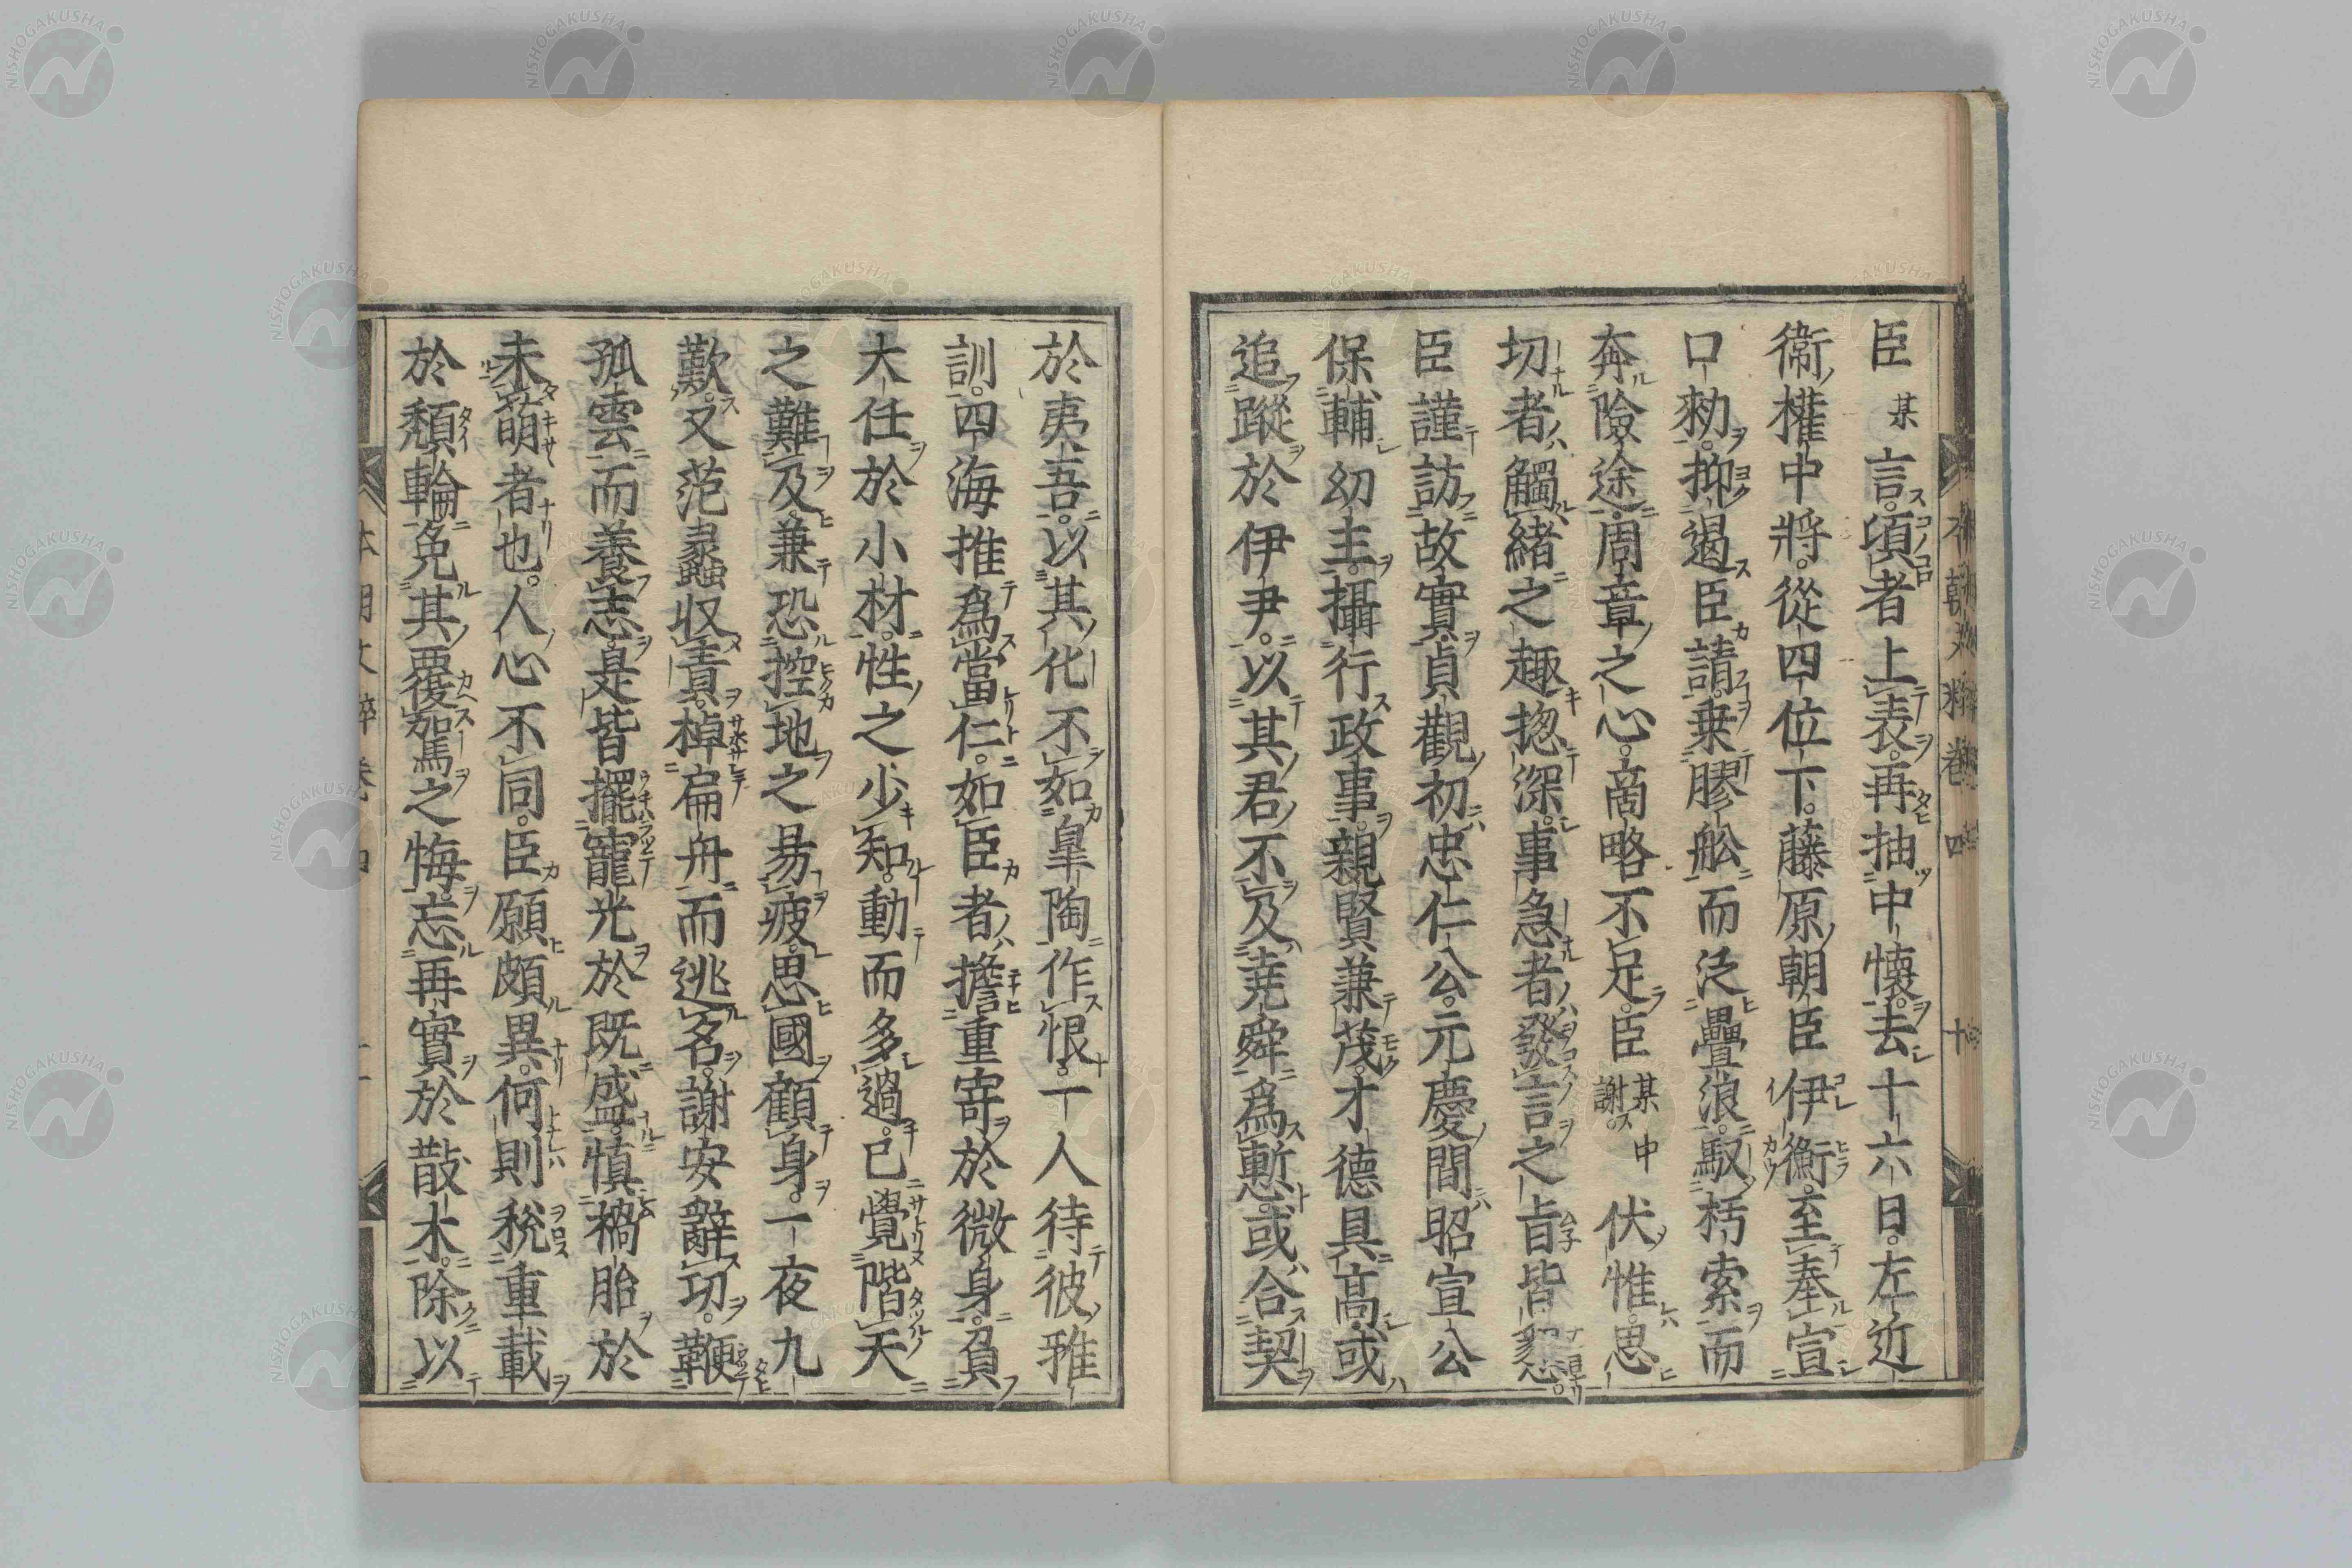 臣某言。頃者上表。再抽中懷。去十六日。左近
衞權中將。從四位下。藤原朝臣伊衡。至奉宣
口勅。抑遏臣請。乗膠舩而泛疊浪。馭朽索而
奔險途。周章之心。啇略不足。臣某中謝。伏惟思
切者。觸緒之趣揔深。事急者。發言之旨皆懇。
臣謹訪故實。貞觀初忠仁公。元慶間昭宣公
保輔幼主。攝行政事。親賢兼茂。才德具高。或
追蹤於伊尹。以其君不及堯舜爲慙。或合契
於夷吾。以其化不如皐陶作恨。一人待彼雅
訓。四海推爲當仁。如臣者。擔重寄於微身。負
大任於小材。性之少知。動而多過。已覺階天
之難及。兼恐控地之易疲。思國顧身。一夜九
歎。又范蠡収責。棹扁舟而逃名。謝安辭功。鞭
孤雲而養志。是皆擺寵光於既盛。慎禍胎於
未萌者也。人心不同。臣願頗異。何則税重載
於頽輪。免其覆駕之悔。忘再實於散木。除以
本朝文粹卷四
十